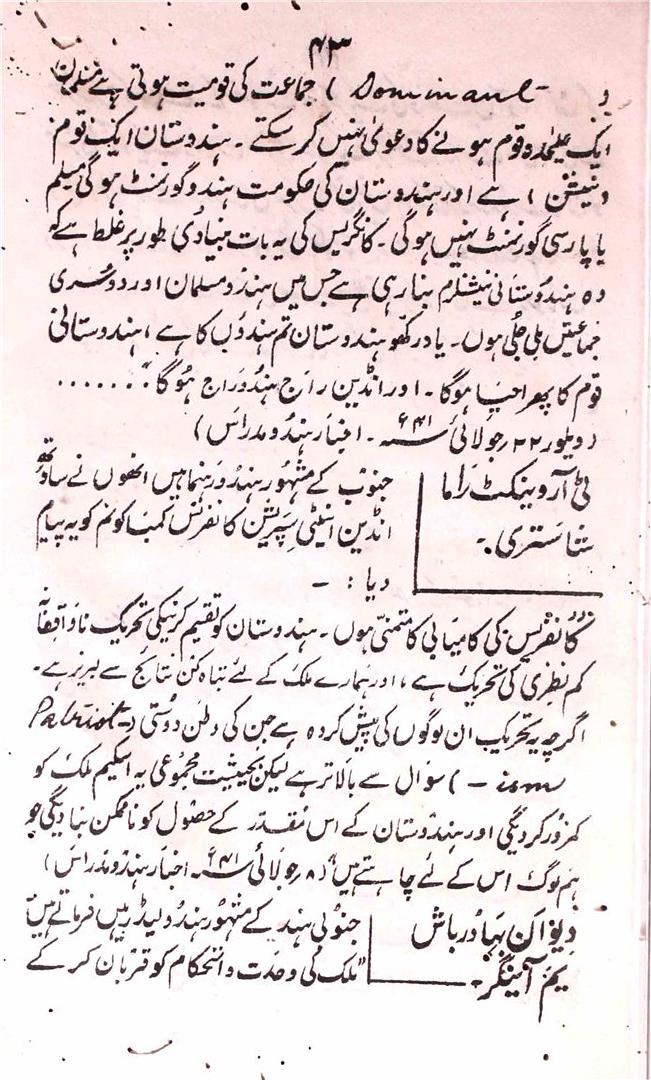 ۴۳
( Dominant ) جماعت کی قومیت ہوتی ہے مسلمان
ایک علیحدہ قوم ہونے کا دعویٰ نہیں کر سکتے ۔ ہندوستان ایک قوم
(نیشن) ہے اور ہندوستان کی حکومت ہندو گورنمنٹ ہوگی مسلم
یا پارسی گورنمنٹ نہیں ہوگی ۔ کانگریس کی یہ بات بنیادی طور پر غلط ہے کہ
وہ ہندوستانی نیشنلزم بنا رہی ہے جس میں ہندو مسلمان اور دوسری
جماعتیں ملی جلی ہوں ۔ یاد رکھو ہندوستان تم ہندوں کا ہے ، ہندوستانی
قوم کا پھر احیا ہوگا ۔ اور انڈین راج ہندو راج ہوگا" .......
(ویلور ۲۲ جولائی ۴۱ء ۔ اخبار ہندو مدراس)
ٹی آر وینکٹ راما شاستری ۔
جنوب کے مشہور ہندو رہنما ہیں انھوں نے ساؤتھ
انڈین اینٹی سپریشن کانفرنس کمباکونم کو یہ پیام
دیا : ۔
"کانفرنس کی کامیابی کا متمنی ہوں ۔ ہندوستان کو تقسیم کرنیکی تحریک ناواقفانہ
کم نظری کی تحریک ہے ، اور ہمارے ملک کے لئے تباہ کن نتائج سے لبریز ہے ۔
اگرچہ یہ تحریک ان لوگوں کی پیش کردہ ہے جن کی وطن دوستی (Patriot-
ism -) سوال سے بالاتر ہے لیکن بحیثیت مجموعی یہ اسکیم ملک کو
کمزور کر دیگی اور ہندوستان کے اس مقدر کے حصول کو ناممکن بنا دیگی جو
ہم لوگ اس کے لئے چاہتے ہیں" (۸ جولائی ۴۱ء ۔ اخبار ہندو مدراس)
دیوان بہادر باش یم آئینگر ۔
جنوبی ہند کے مشہور ہندو لیڈر ہیں فرماتے ہیں
"ملک کی وحدت و استحکام کو قربان کر کے